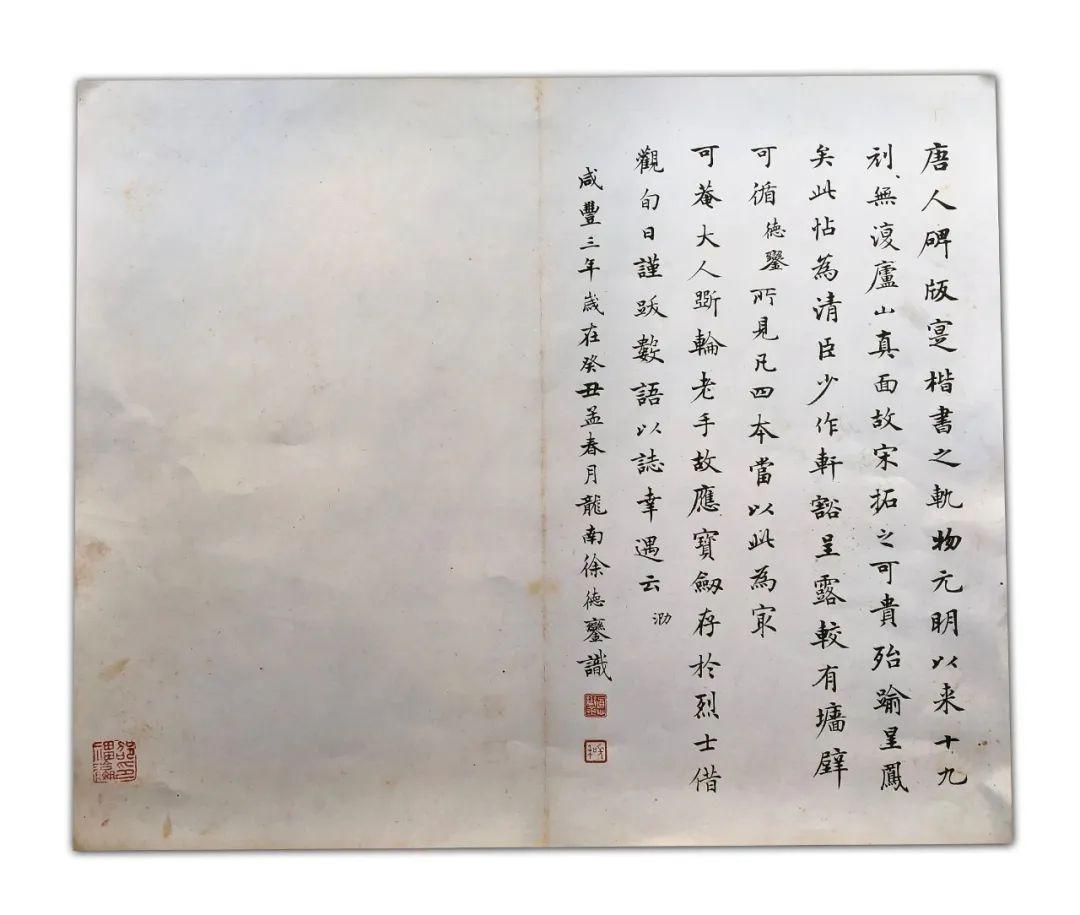 唐人碑版寔楷書之軌物元明以来十九
刓無復廬山真面故宋拓之可貴殆踰星鳳
矣此帖為清臣少作軒豁呈露較有墻壁
可循德鑾所見凡四本當以此為冣
可菴大人斲輪老手故應寶劒存於烈士借
觀旬日謹跋數語以誌幸遇云 泐
咸豐三年歲在癸丑孟春月龍南徐德鑾識